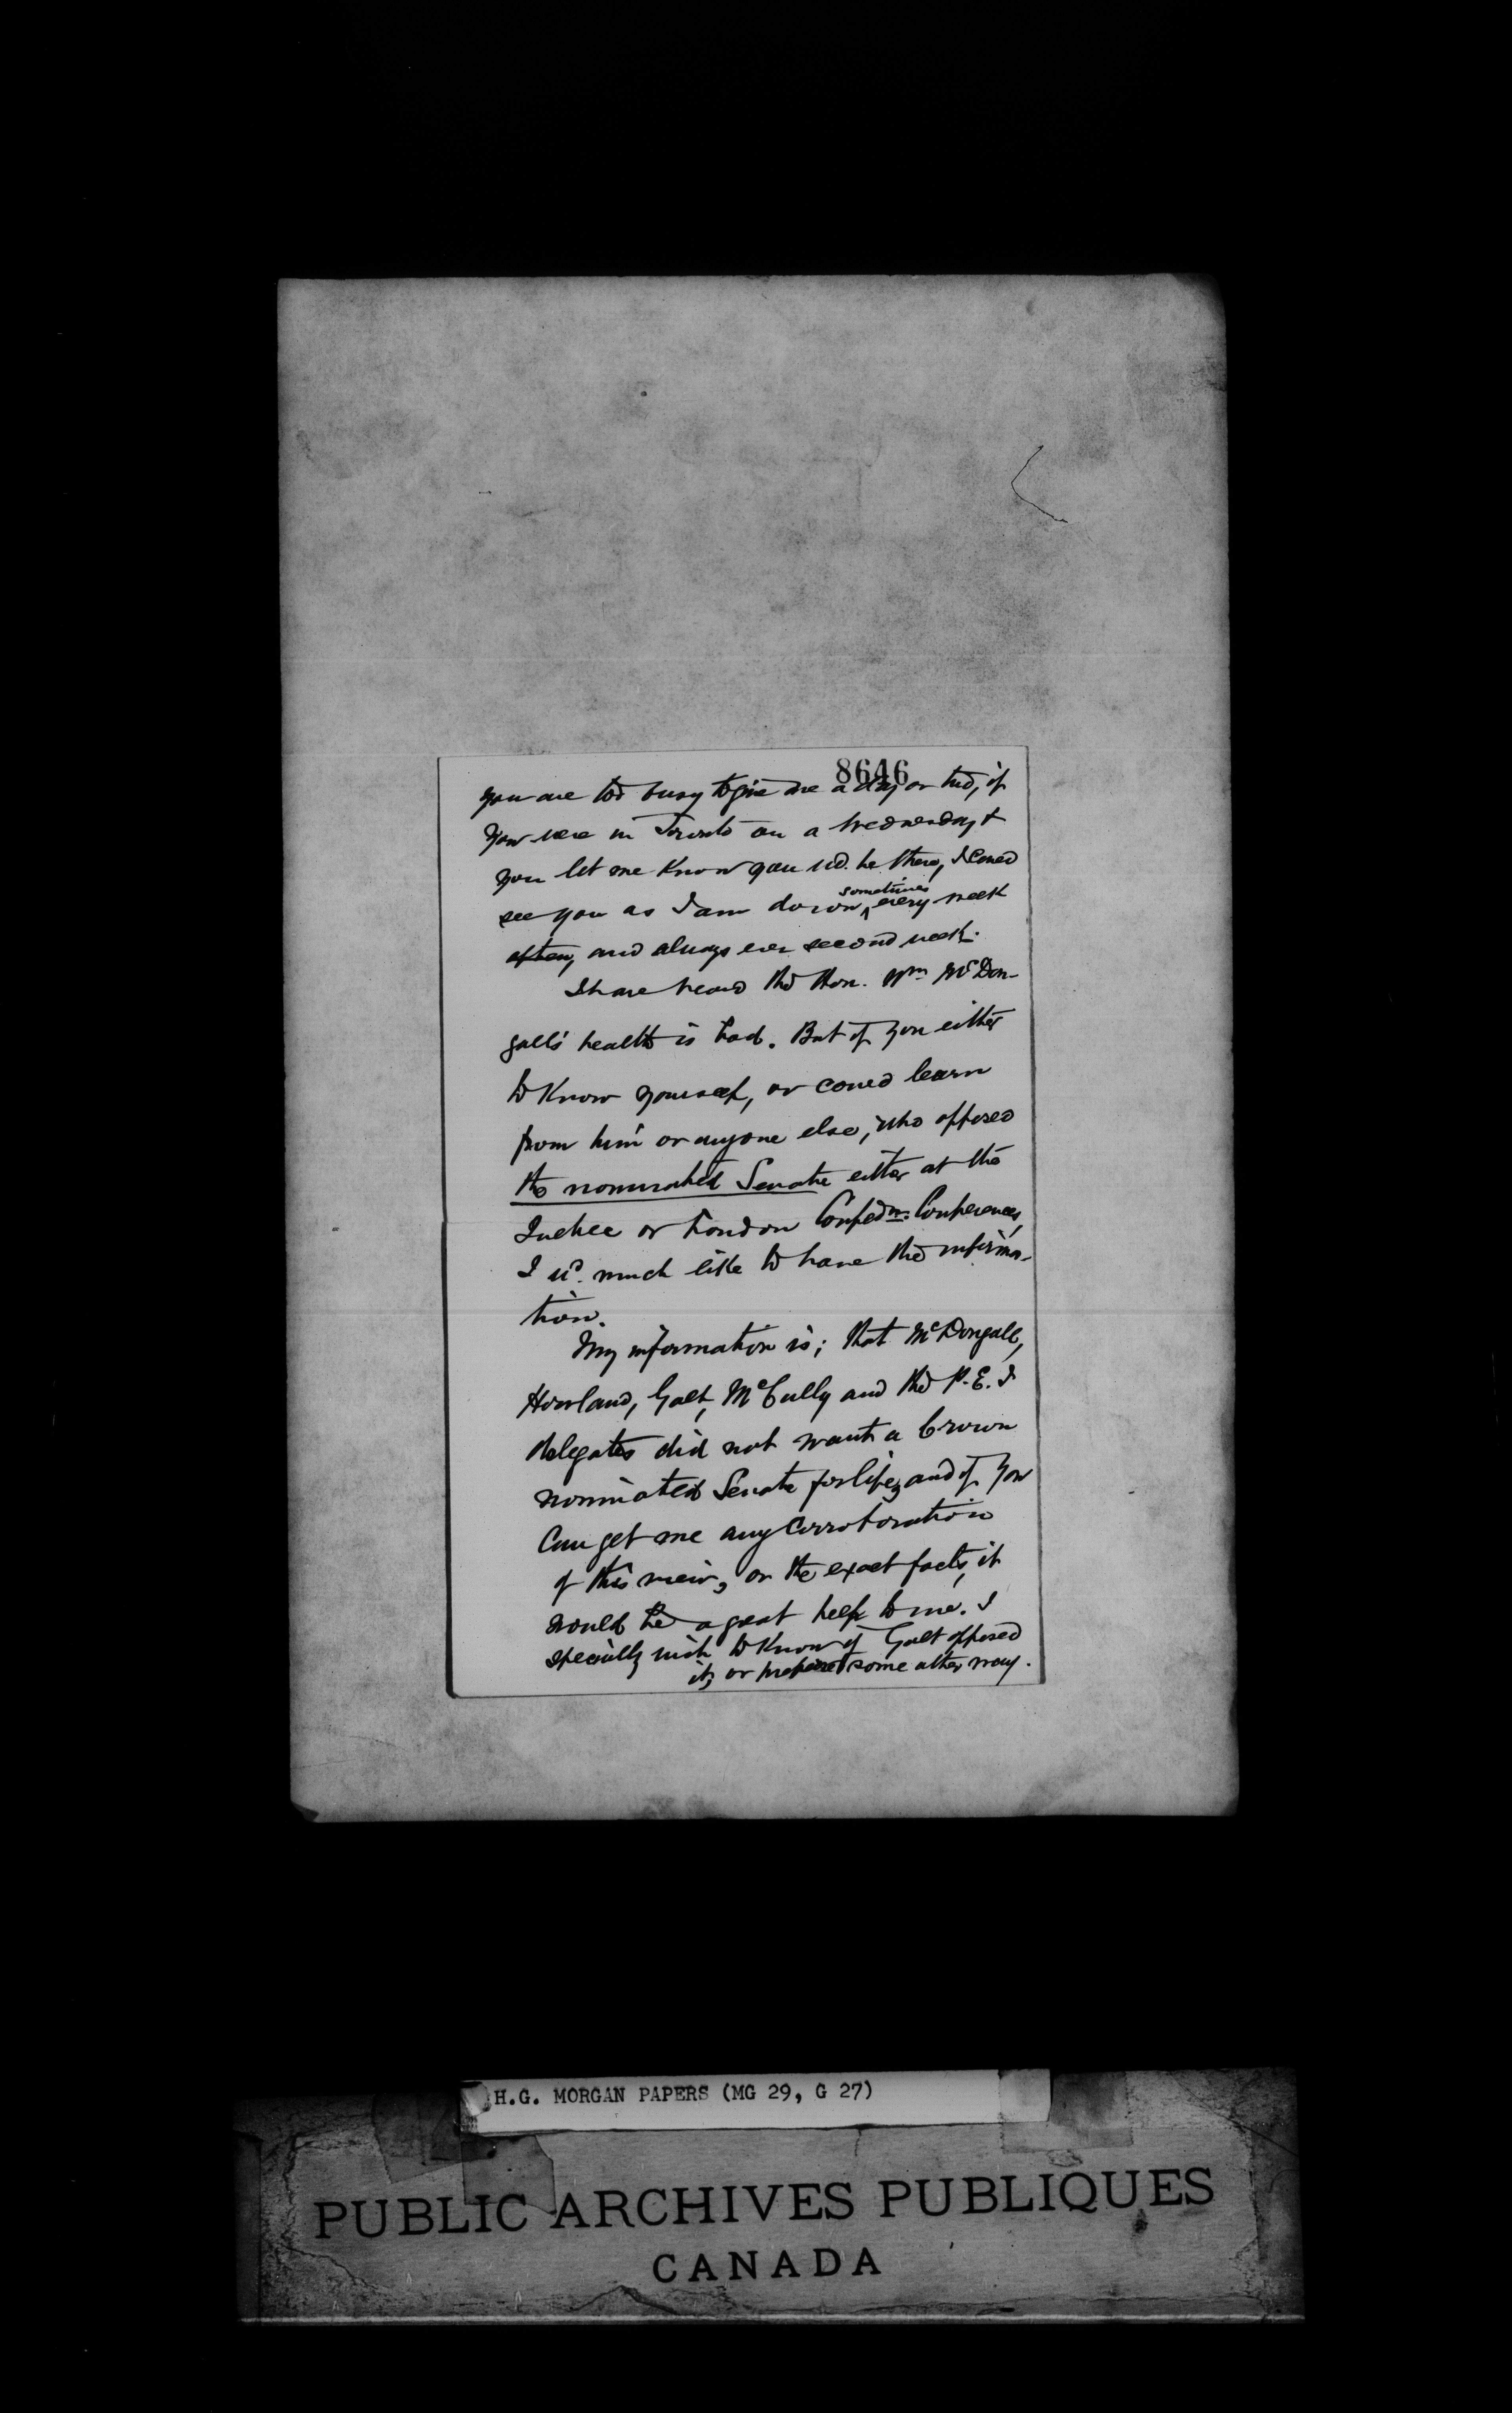 8646
you are too busy to give me a day or two, if
you were in Toronto on a Wednesday &
you let me know you wd. be there, I could
see you as I am down ^ sometimes every week
often, and always ever second week.
I have heard the Hon. Wm McDou-
gall's health is bad. But if you either
to know yourself, or could learn
from him or anyone else, who opposed
the nominated Senate either at the
Quebec or London Confedn. Conferences,
I wd. much like to have the informa-
tion.
My information is; that McDougall,
Howland, Galt, McCully and the P.E.I
delegates did not want a Crown
nominated Senate for life, and if you
can get me any corroboration
of this view, or the exact facts, it
would be a great help to me. I
specially wish to know if Galt opposed
it, or proposed some other way.
H.G. MORGAN PAPERS (MG 29, G 27)
PUBLIC ARCHIVES PUBLIQUES
CANADA